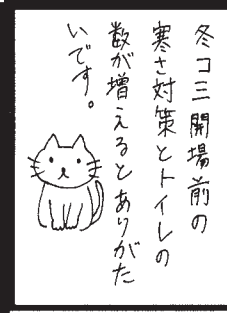 冬コミ開場前の
寒さ対策とトイレの
数が増えるとありがた
いです。